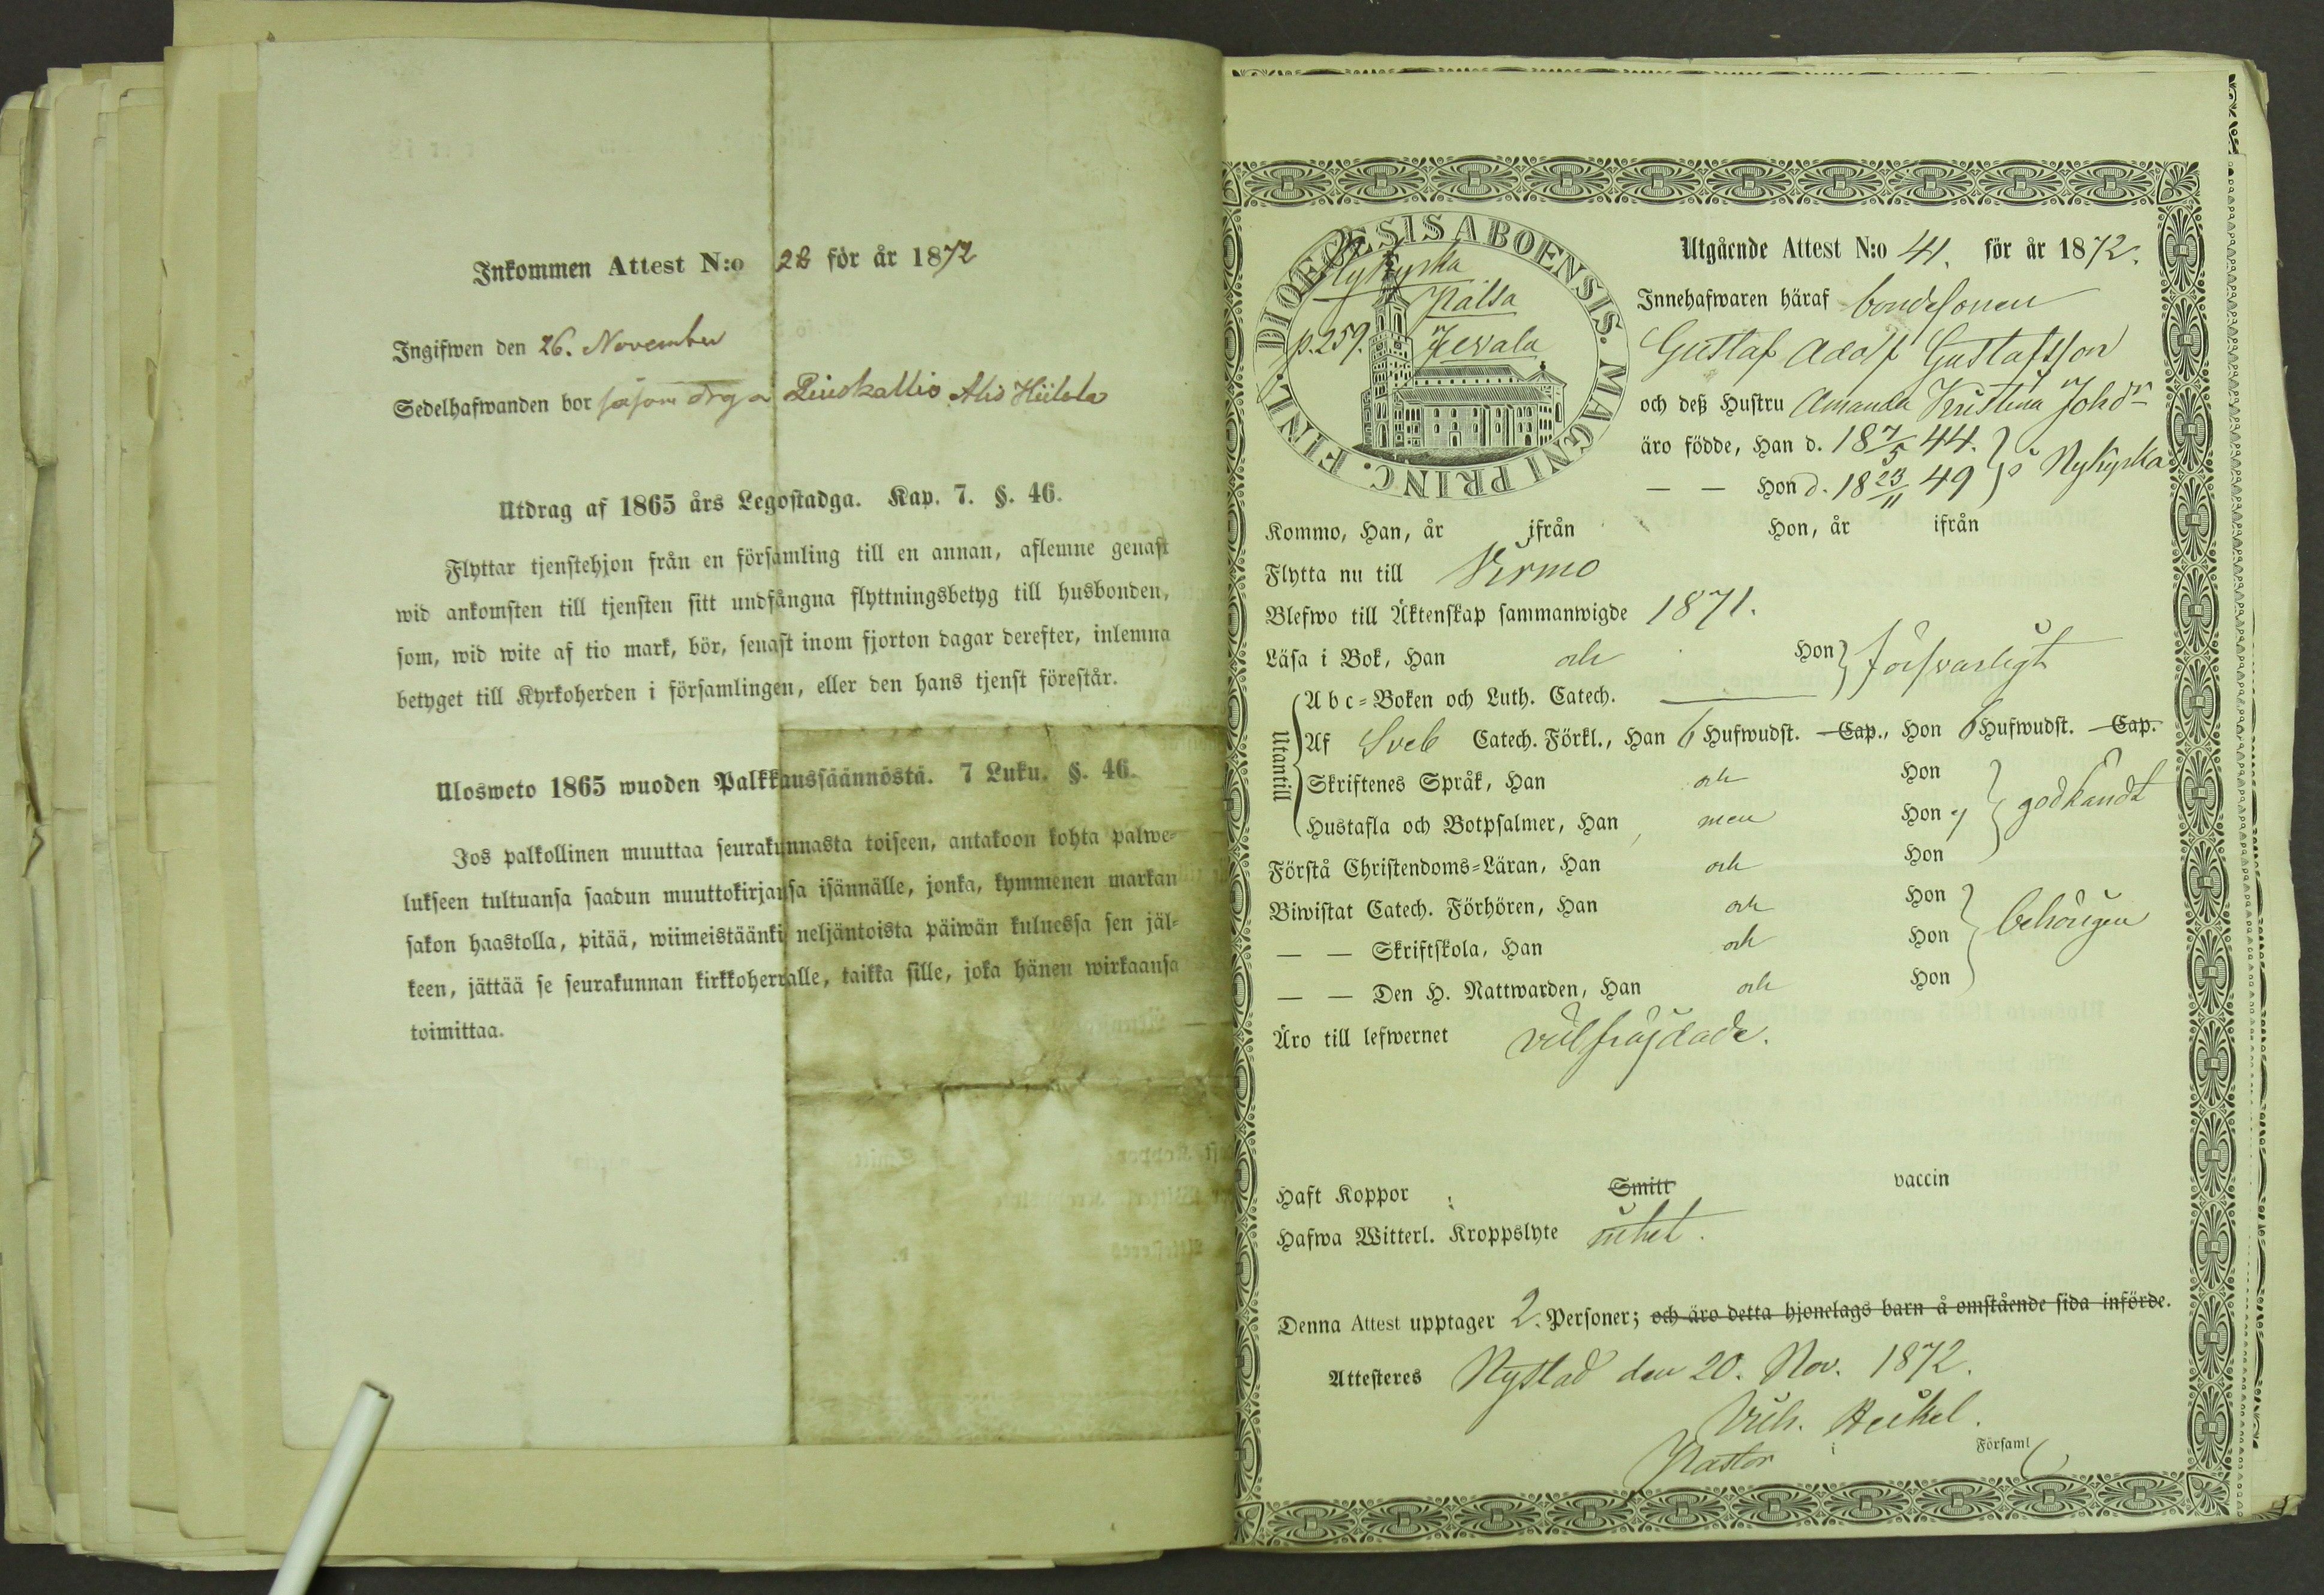 Inkommen Attest N:o 28 för år 1872
Ingifwen den 26. November
Sedelhafwanden bor såsom drg å Alho Hiilola
Utdrag af 1865 års Legostadga. Kap. 7. §. 46.
Flyttar tjenstehjon från en församling till en annan, aflemne genast
wid ankomsten till tjensten sitt undfångna flyttningsbetyg till husbonden,
som, wid wite af tio mark, bör, senast inom fjorton dagar derefter, inlemna
betyget till Kyrkoherden i församlingen, eller den hans tjenst förestår.
Ulosweto 1865 wuoden Palkkaussäännöstä. 7 Luku. §. 46.
Jos palkollinen muuttaa seurakunnasta toiseen, antakoon kohta palwe-
lukseen tultuansa saadun muuttokirjansa isännälle, jonka, kymmenen markan
sakon haastolla, pitää, wiimeistäänki, neljäntoista päiwän kuluessa sen jäl-
keen, jättää se seurakunnan kirkkoherralle, taikka sille, joka hänen wirkaansa
toimittaa.
DIOECESIS ABOENSIS. MAGNI PRINC. FINL.
Nykyrka
p. 259.
Utgående Attest N:o 41. för år 1872.
Innehafwaren häraf bondesonen
Gustaf Adolf Gustafsson
och deß Hustru Amanda Kristina Johdr
äro födde, Han d. 18 7/5 44. } i Nykyrka
— — Hon d. 18 23/11 49
Kommo, Han, år ifrån Hon, år ifrån
Flytta nu till Virmo
Blefwo till Äktenskap sammanwigde 1871.
Läsa i Bok, Han och Hon } försvarligt
Utantill
Abc-Boken och Luth. Catech.
Af Sveb Catech. Förkl., Han 6 Hufwudst. Cap., Hon 6 Hufwudst. Cap.
Skriftenes Språk, Han och Hon
Hustafla och Botpsalmer, Han men Hon ej } godkändt
Förstå Christendoms-Läran, Han och Hon
Biwistat Catech. Förhören, Han och Hon
— — Skriftskola, Han och Hon } behörigen
— — Den H. Nattwarden, Han och Hon
Äro till lefwernet välfrägdade.
Haft Koppor : Smitt vaccin
Hafwa Witterl. Kroppslyte intet.
Denna Attest upptager 2. Personer; och äro detta hjonelags barn å omstående sida införde.
Attesteres Nystad den 20. Nov. 1872.
Vilh. Heikel.
Pastor i Församl